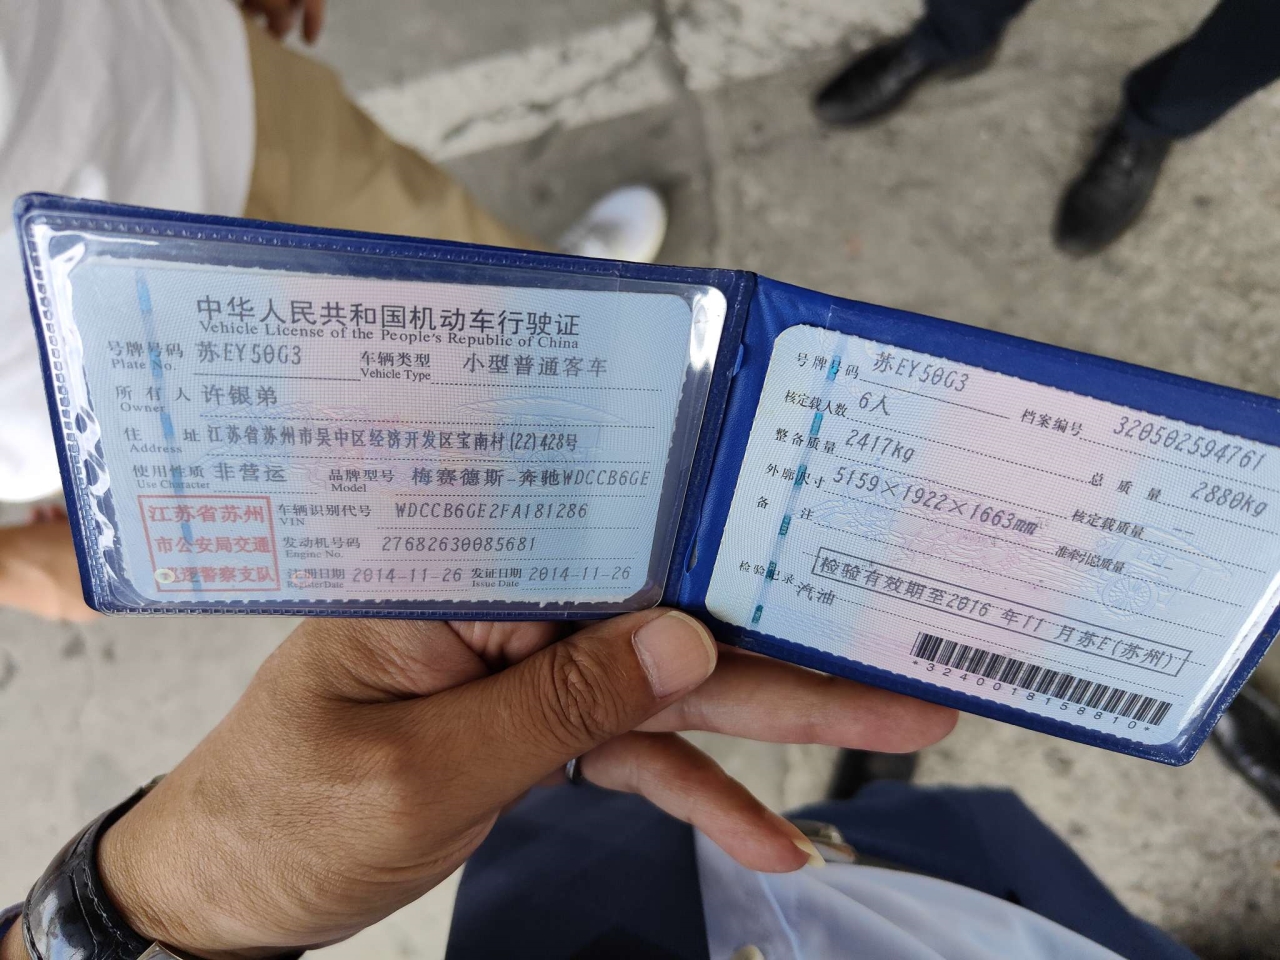 中华人民共和国机动车行驶证
Vehicle License of the People's Republic of China
号牌号码 苏EY50G3 车辆类型 小型普通客车
Plate No. Vehicle Type
所有人 许银弟
Owner
住址 江苏省苏州市吴中区经济开发区宝南村(22)428号
Address
使用性质 非营运 品牌型号 梅赛德斯-奔驰WDCCB6GE
Use Character Model
江苏省苏州
市公安局交通
巡逻警察支队
车辆识别代号 WDCCB6GE2FA181286
VIN
发动机号码 27682630085681
Engine No.
注册日期 2014-11-26 发证日期 2014-11-26
Register Date Issue Date
号牌号码 苏EY50G3 档案编号 320502594761
核定载人数 6人 总质量 2880kg
整备质量 2417kg 核定载质量 --
外廓尺寸 5159×1922×1663mm 准牵引总质量 --
备注
检验有效期至2016年11月苏E(苏州)
检验记录 汽油
*3240018158810*